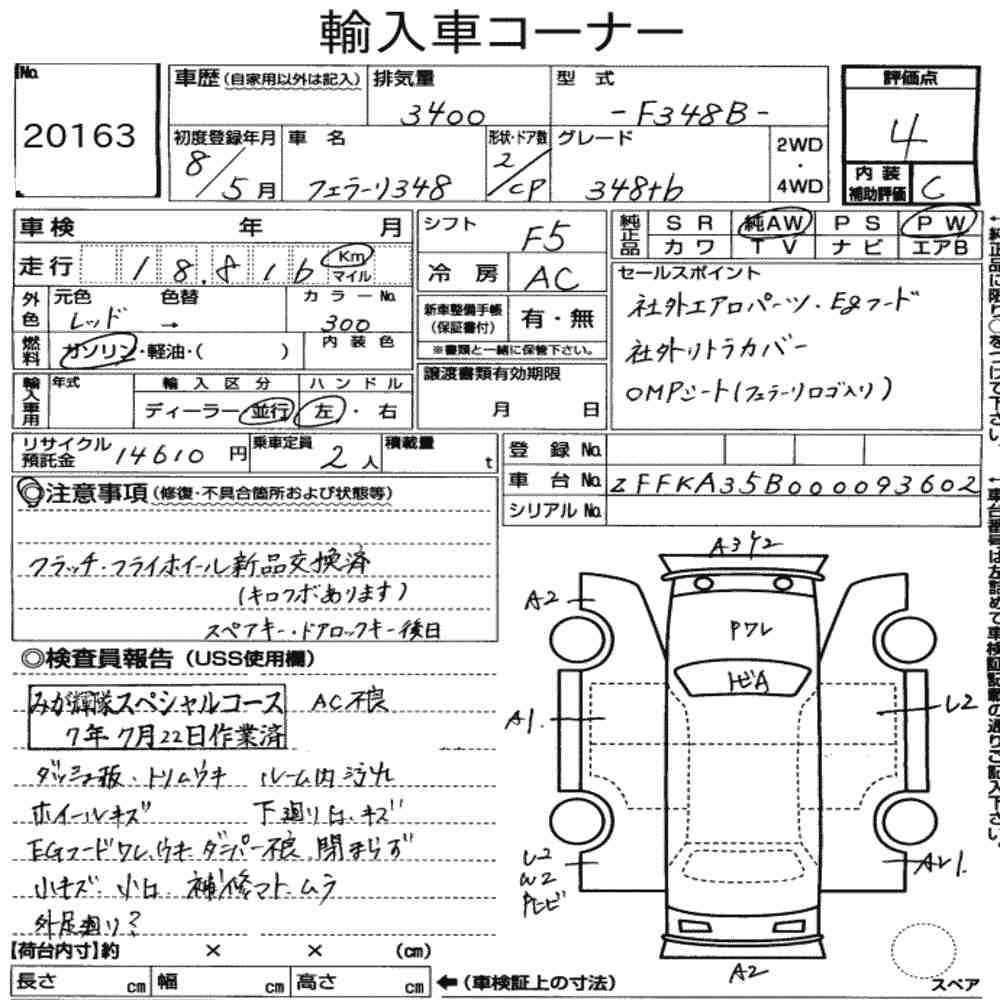 輸入車コーナー
No. 20163
車歴(自家用以外は記入) 排気量 3400 型式 -F348B-
初度登録年月 8/5月 車名 フェラーリ348 形状・ドア数 2/CP グレード 348tb 2WD・4WD
評価点 4
内装補助評価 C
車検 年 月
走行 18,816 Km マイル
外色 元色 レッド 色替 → カラーNo. 300
燃料 ガソリン・軽油・( ) 内装色
輸入車用 年式 輸入区分 ディーラー・並行 ハンドル 左・右
シフト F5
冷房 AC
新車整備手帳(保証書付) 有・無
※書類と一緒に保管下さい。
譲渡書類有効期限
月 日
純正品 SR 純AW PS PW
カワ TV ナビ エアB
セールスポイント
社外エアロパーツ・Egフード
社外リトラカバー
OMPシート(フェラーリロゴ入り)
←純正品に限り○をつけて下さい。
リサイクル預託金 14610円 乗車定員 2人 積載量 t
登録No.
車台No. ZFFKA35B000093602
シリアルNo.
←車台番号は左詰めで車検証記載の通りご記入下さい。
◎注意事項(修復・不具合箇所および状態等)
クラッチ・フライホイール新品交換済
(キロクボあります)
スペアキー・ドアロックキー後日
◎検査員報告(USS使用欄)
みが輝隊スペシャルコース AC不良
7年7月22日作業済
ダッシュ板・トリムウキ ルーム内汚れ
ホイールキズ 下廻り凹、キズ
EGフードワレ、ウキ、ダンパー不良、閉まらず
小キズ、小凹、補修マト、ムラ
外足廻り?
A3Y2
A2
Pワレ
トビA
A1
L2
U2
W2
Pトビ
AU1
A2
スペア
【荷台内寸】約 × × (cm)
長さ cm 幅 cm 高さ cm ←(車検証上の寸法)